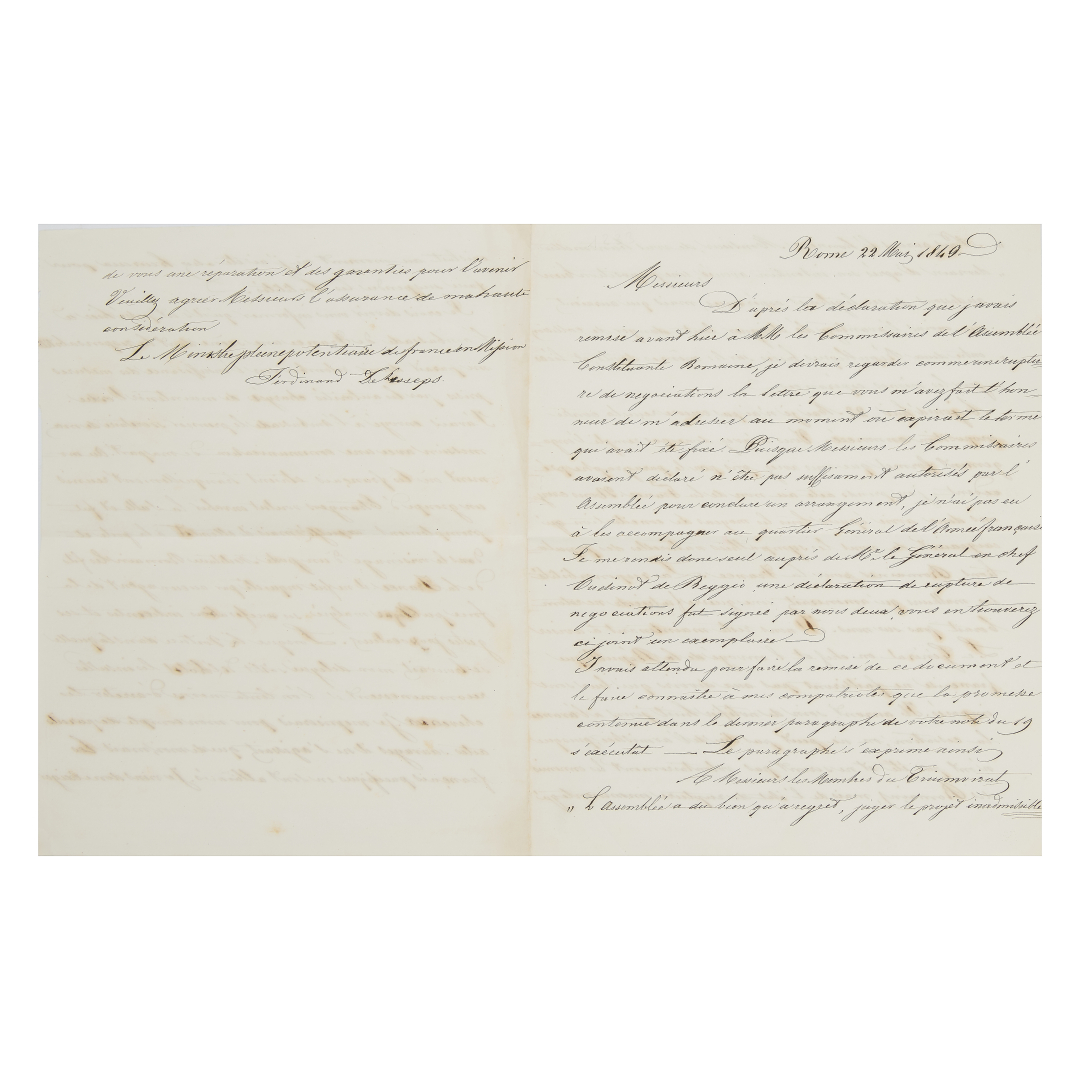 Rome 22 Mai 1849
Messieurs
D'après la déclaration que j'avais
remise avant hier à MM les Commissaires de l'Assemblée
Constituante Romaine, je devais regarder comme une ruptu
re de negociations la lettre que vous m'avez fait l'hon_
neur de m'adresser au moment où expirait le terme
qui avait été fixé. Puisque Messieurs les Commissaires
avaient déclaré n'être pas suffisament autorisés par l'
Assemblée pour conclure un arrangement, je n'ai pas eu
à les accompagner au quartier Général de l'Armée française
Je me rendis donc seul auprès de Mr. le Général en chef
Oudinot de Reggio une déclaration de rupture de
negociations fut signée par nous deux, vous en trouverez
ci joint un exemplaire
J'avais attendu pour faire la remise de ce document et
le faire connaître à mes compatriotes que la promesse
contenue dans le dernier paragraphe de votre note du 19
s'exécutat — Le paragraphe s'exprime ainsi
A Messieurs les Membres du Triumvirat
„ L'Assemblée a du bien qu'à regret, juger le projet inadmissible
de vous une réparation et des garanties pour l'avenir
Veuillez agréer Messieurs l'assurance de ma haute
considération
Le Ministre plenipotentiaire de france en Mission
Ferdinand De Lesseps